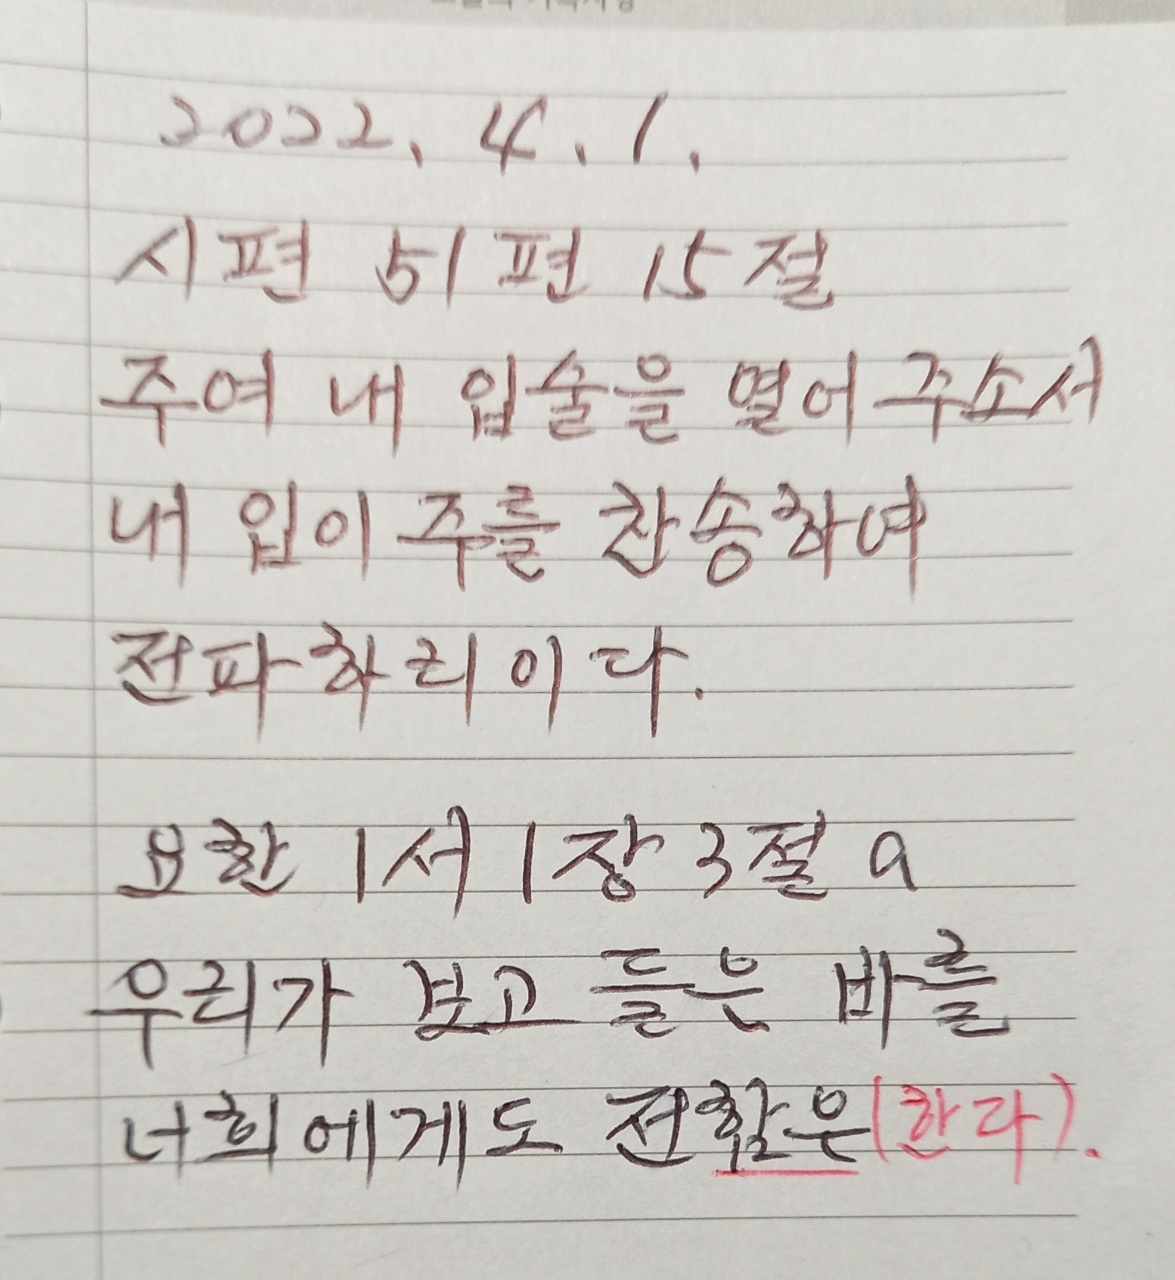 2022. 4. 1.
시편 51편 15절
주여 내 입술을 열어 주소서
내 입이 주를 찬송하여
전파하리이다.
요한 1서 1장 3절 a
우리가 보고 들은 바를
너희에게도 전함은(한다).